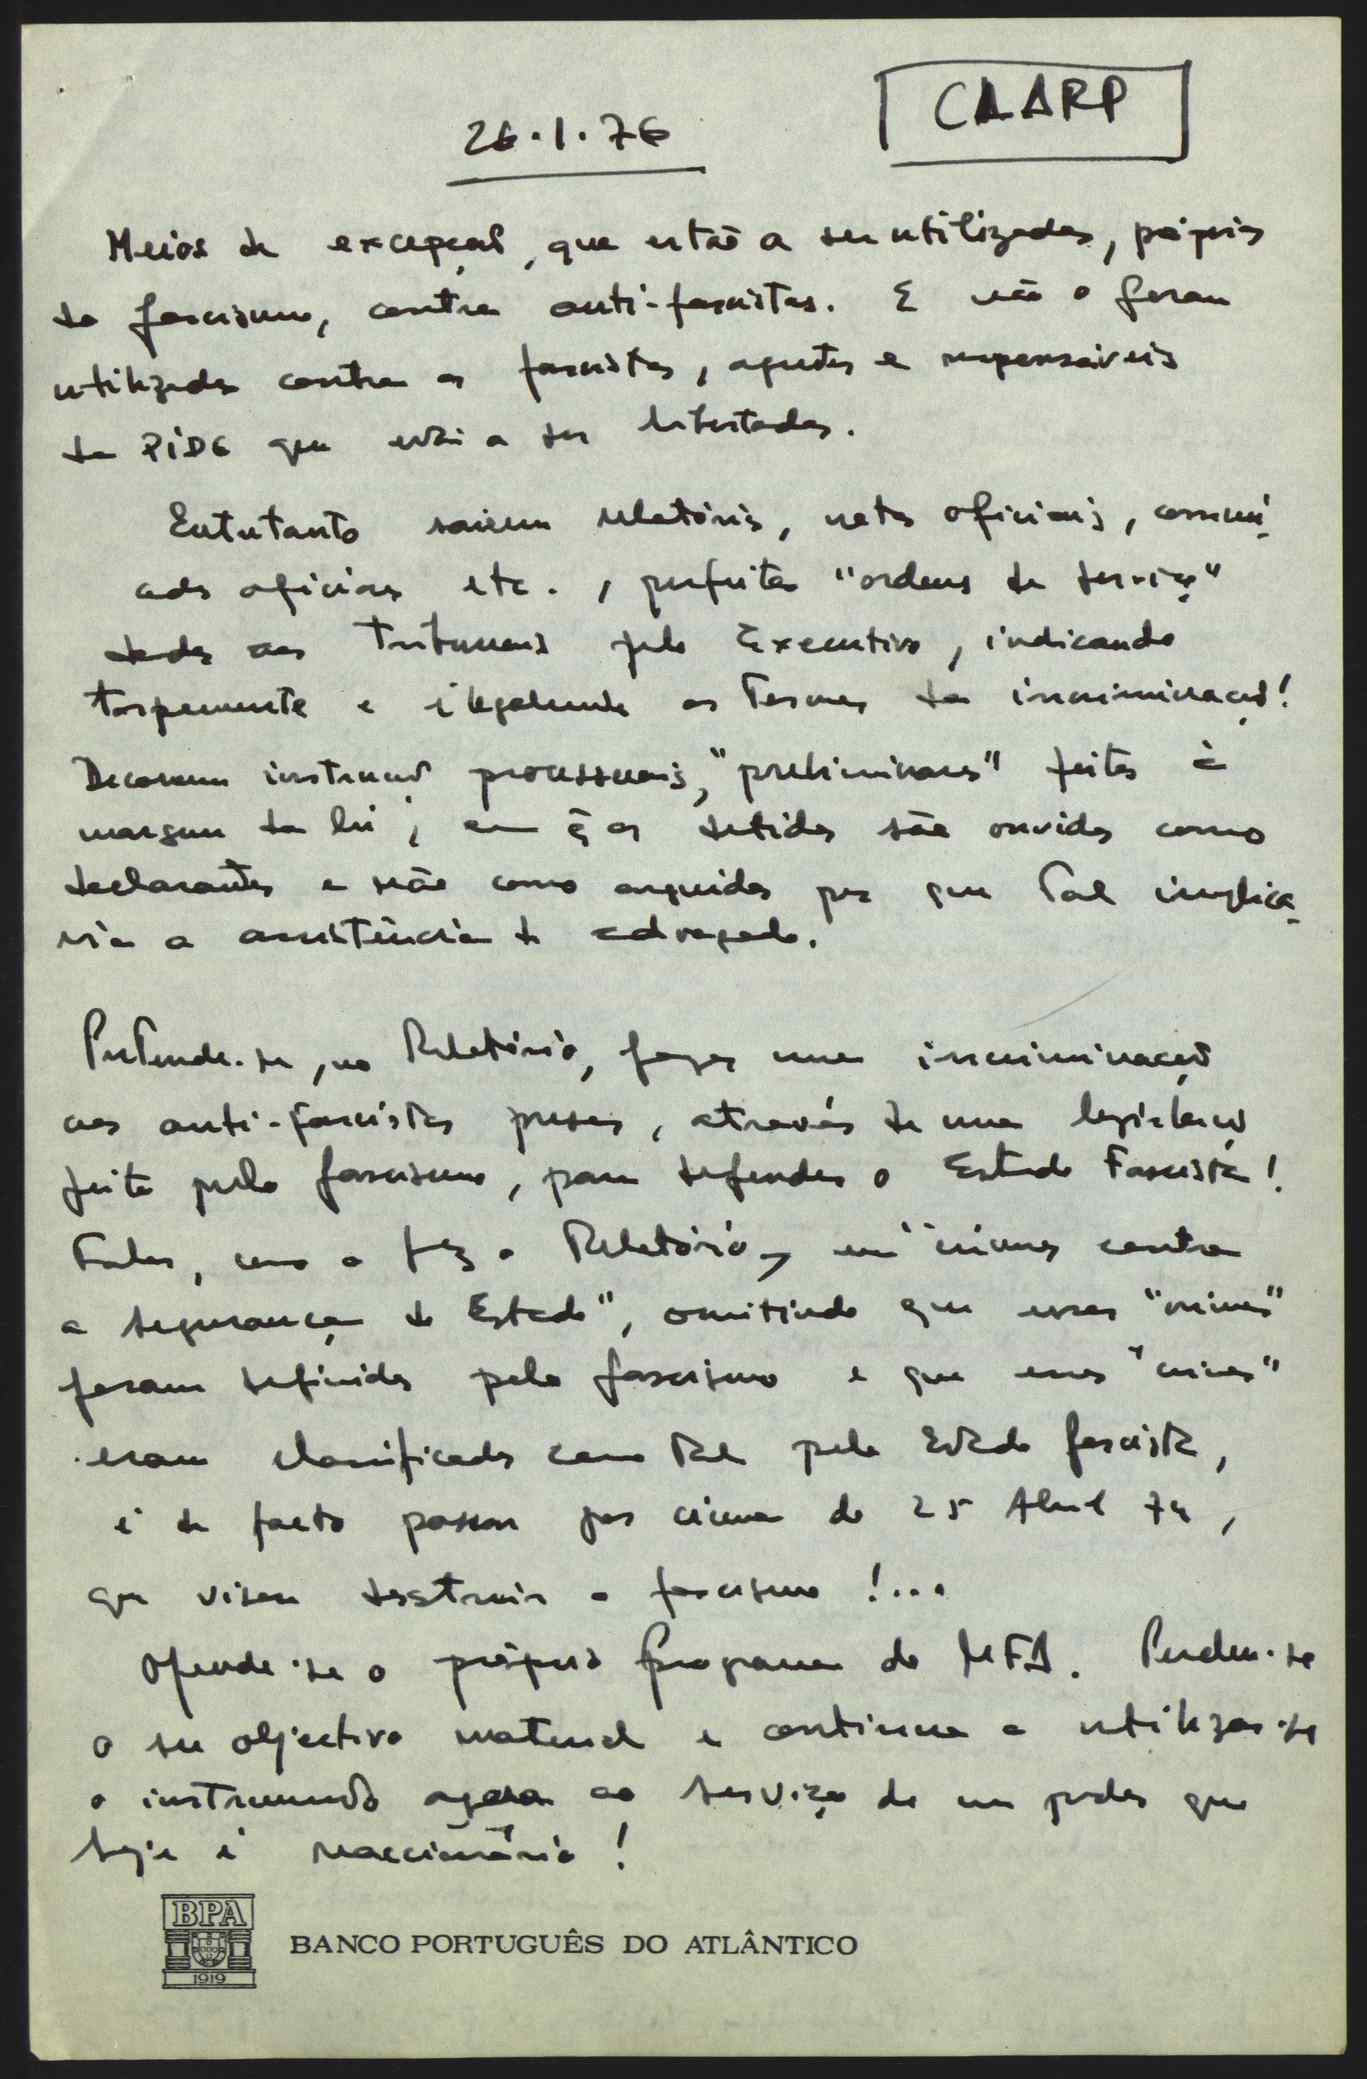 26.1.76
CAARP
Meios de excepção, que estão a ser utilizados, próprios
do fascismo, contra anti-fascistas. E não o foram
utilizados contra os fascistas, agentes e responsáveis
da PIDE que estão a ser libertados.
Entretanto sairem relatórios, notas oficiais, comuni-
cados oficiais etc., perfeitas "ordens de serviço"
dadas aos Tribunais pelo Executivo, indicando
torpemente e ilegalmente os termos da incriminação!
Decorrem instrução processuais, "preliminares" feitas à
margem da lei, em q̃ os detidos são ouvidos como
declarantes e não como arguidos por que tal implica-
ria a assistência de advogado.
Pretende-se, no Relatório, fazer uma incriminação
aos anti-fascistas presos, através de uma legislação
feita pelo fascismo, para defender o Estado Fascista!
Falar, como o fez o Relatório, em "crimes contra
a segurança do Estado", omitindo que esses "crimes"
foram definidos pelo fascismo e que esses "crimes"
eram classificados como tal pelo Estado fascista,
é de facto passar por cima do 25 Abril 74,
que visou destruir o fascismo!...
Ofende-se o próprio Programa do MFA. Perdeu-se
o seu objectivo material e continua a utilizar-se
o instrumento agora ao serviço de um poder que
hoje é reaccionário!
BPA
1919
BANCO PORTUGUÊS DO ATLÂNTICO